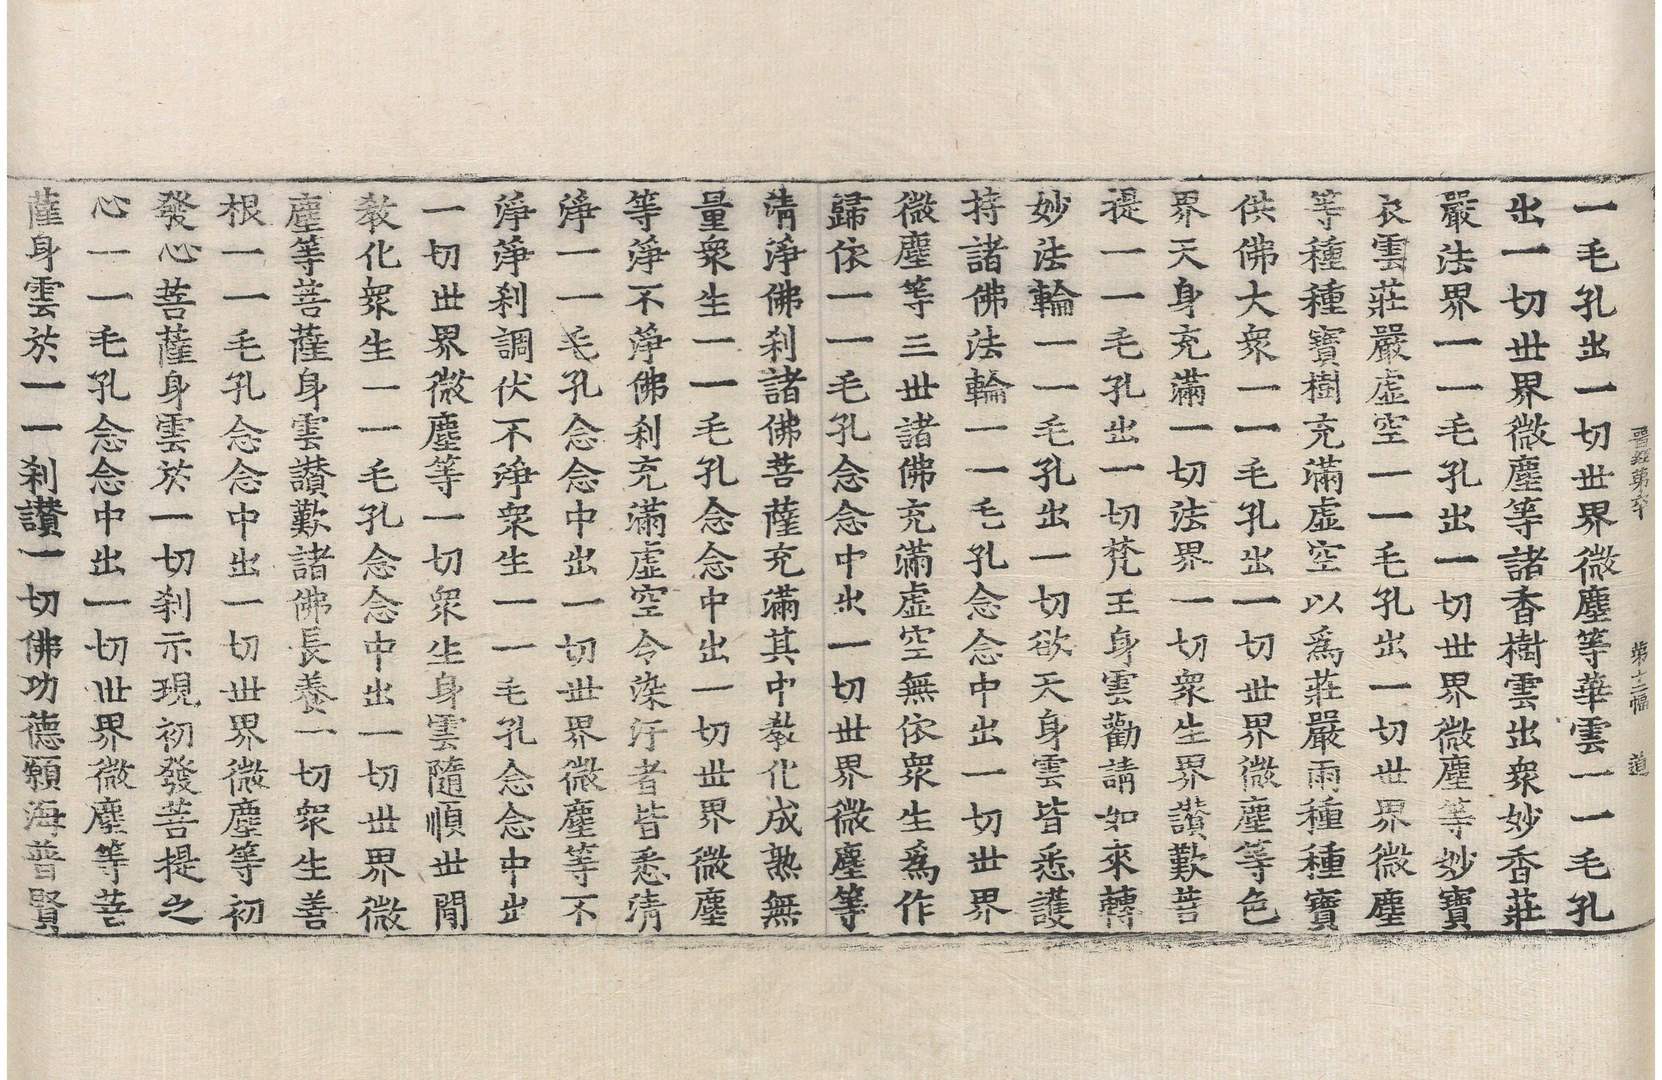 晉經第六十 第十二幅 道
一毛孔出一切世界微塵等華雲一一毛孔
出一切世界微塵等諸香樹雲出衆妙香莊
嚴法界一一毛孔出一切世界微塵等妙寶
衣雲莊嚴虛空一一毛孔出一切世界微塵
等種種寶樹充滿虛空以爲莊嚴雨種種寶
供佛大衆一一毛孔出一切世界微塵等色
界天身充滿一切法界一切衆生界讃歎菩
提一一毛孔出一切梵王身雲勸請如來轉
妙法輪一一毛孔出一切欲天身雲皆悉護
持諸佛法輪一一毛孔念念中出一切世界
微塵等三世諸佛充滿虛空無依衆生爲作
歸依一一毛孔念念中出一切世界微塵等
清淨佛刹諸佛菩薩充滿其中教化成熟無
量衆生一一毛孔念念中出一切世界微塵
等淨不淨佛刹充滿虛空令染汙者皆悉清
淨一一毛孔念念中出一切世界微塵等不
淨淨刹調伏不淨衆生一一毛孔念念中出
一切世界微塵等一切衆生身雲隨順世間
教化衆生一一毛孔念念中出一切世界微
塵等菩薩身雲讃歎諸佛長養一切衆生善
根一一毛孔念念中出一切世界微塵等初
發心菩薩身雲於一切刹示現初發菩提之
心一一毛孔念念中出一切世界微塵等菩
薩身雲於一一刹讃一切佛功德願海普賢